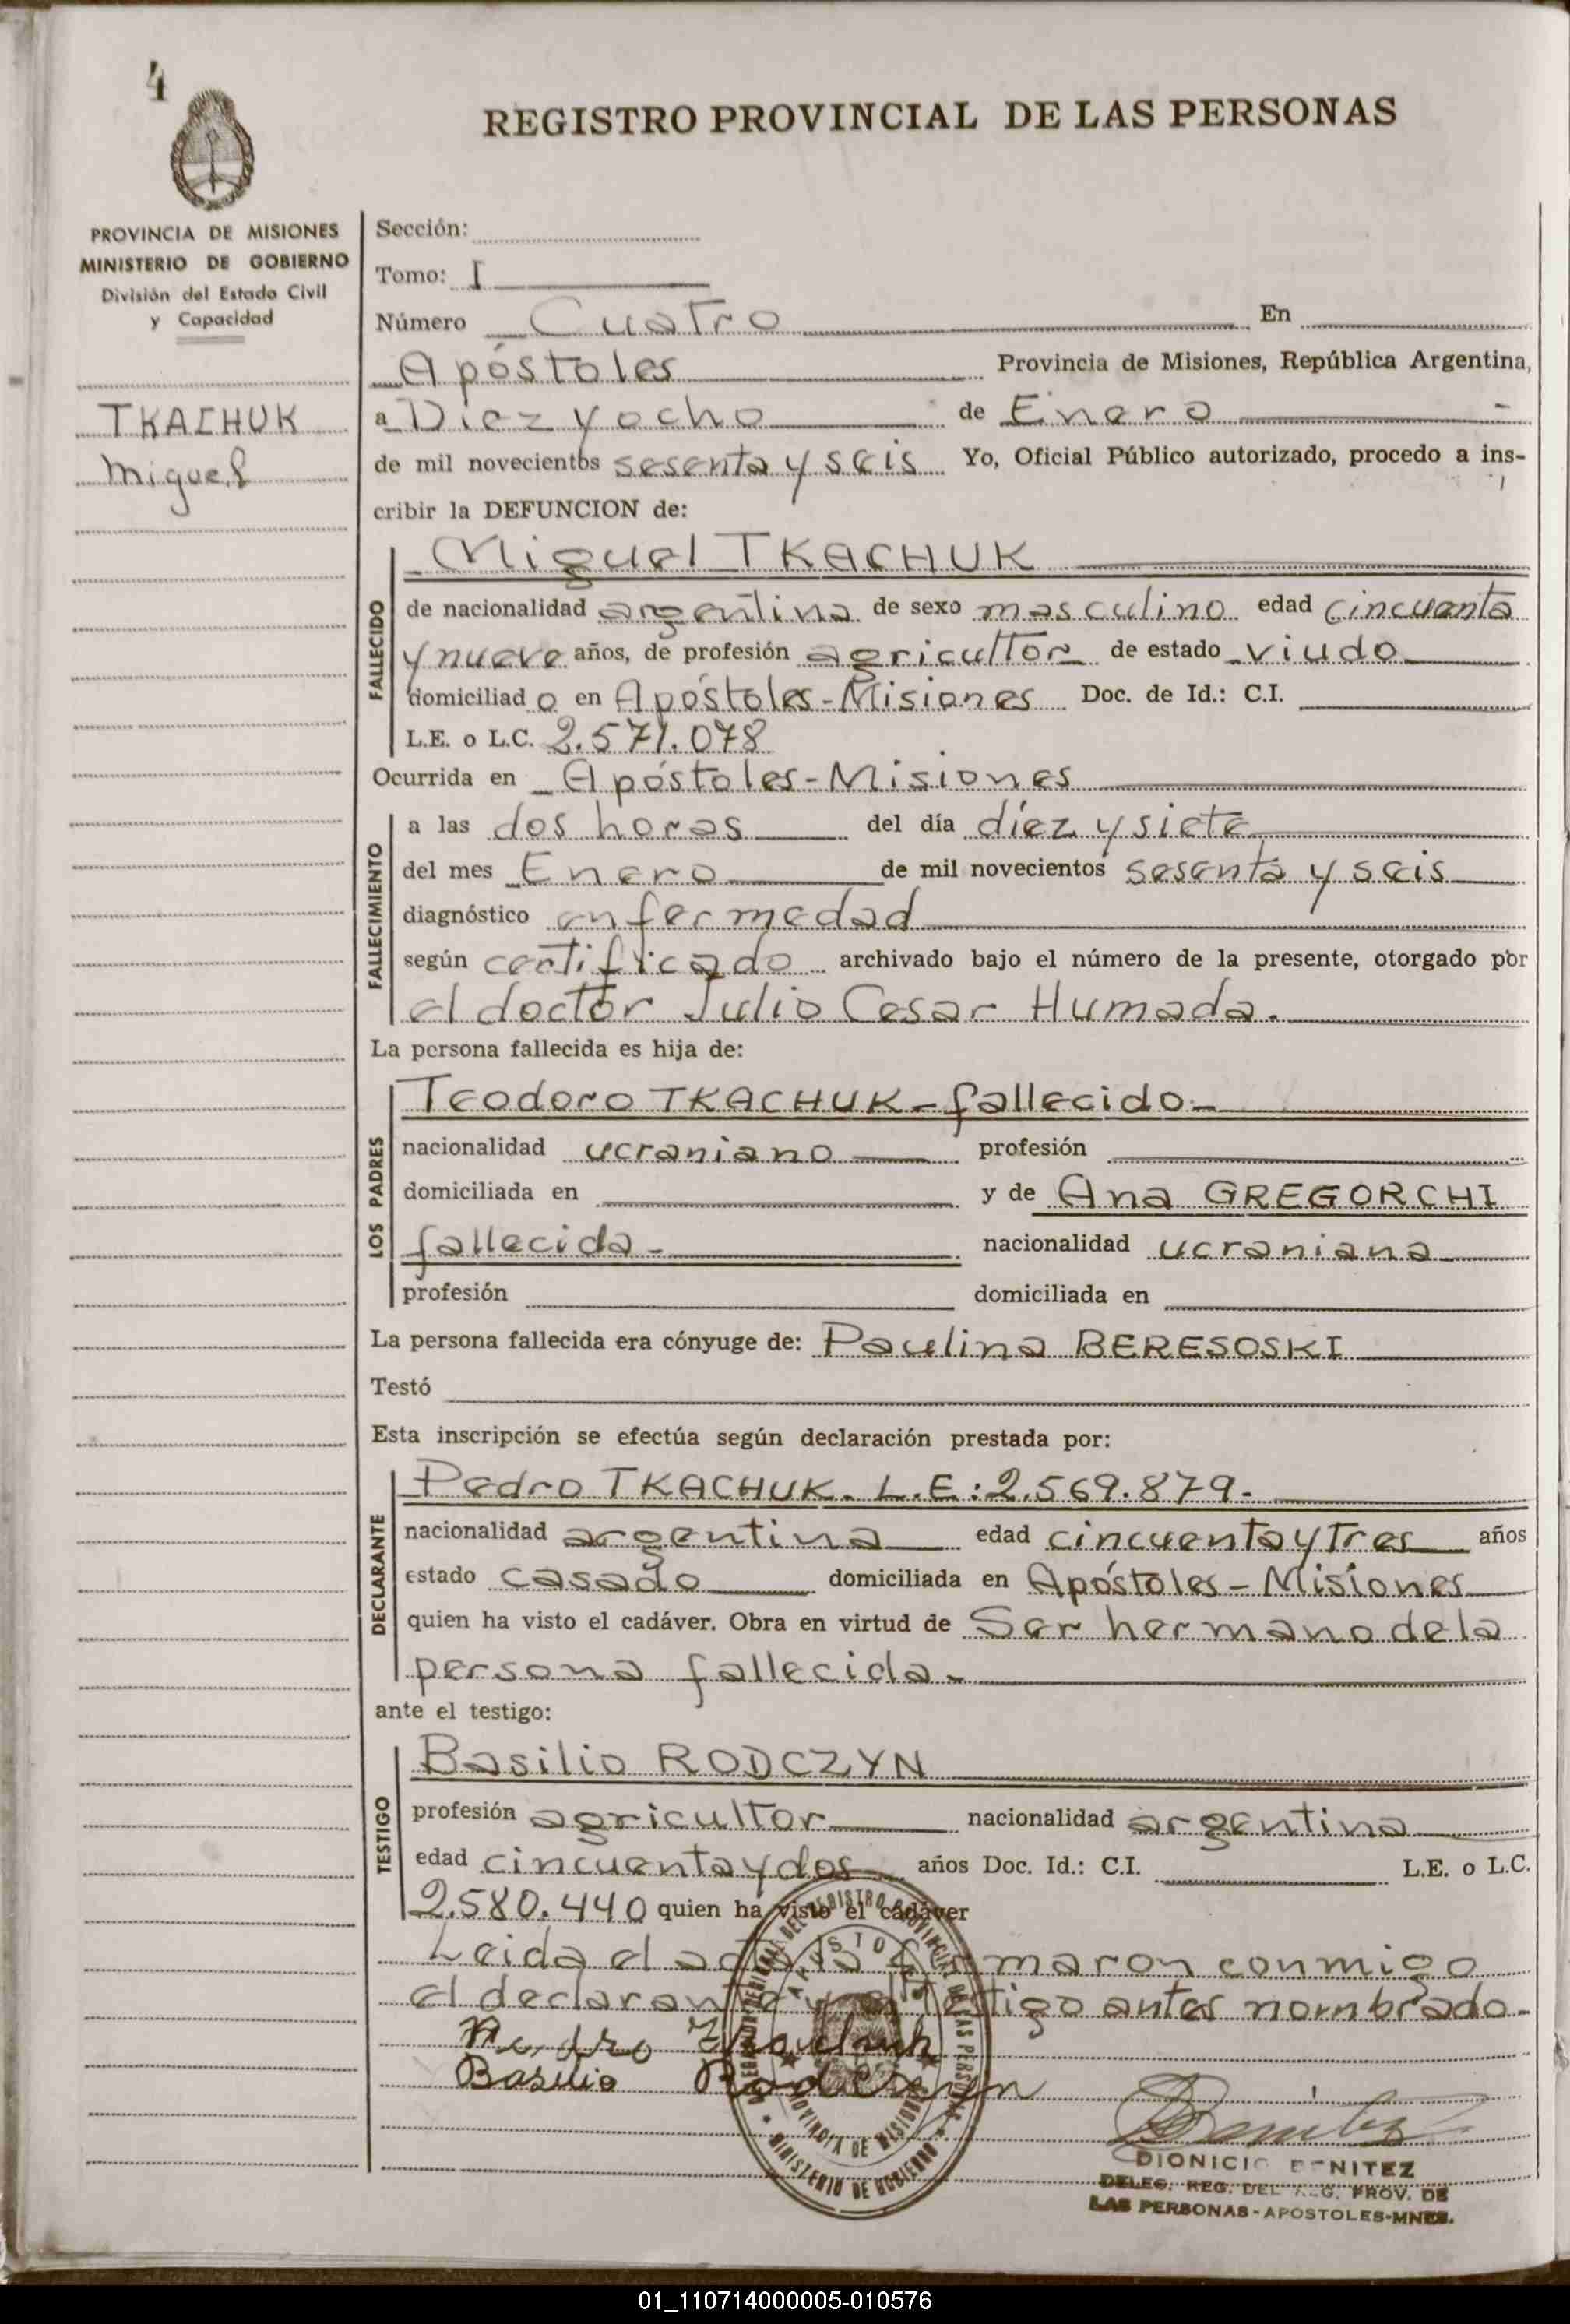 4
REGISTRO PROVINCIAL DE LAS PERSONAS
PROVINCIA DE MISIONES
MINISTERIO DE GOBIERNO
División del Estado Civil
y Capacidad
TKACHUK
Miguel
Sección:
Tomo: I
Número Cuatro En
Apóstoles Provincia de Misiones, República Argentina,
a Diez y ocho de Enero
de mil novecientos sesenta y seis Yo, Oficial Público autorizado, procedo a ins-
cribir la DEFUNCION de:
FALLECIDO
Miguel TKACHUK
de nacionalidad argentina de sexo masculino edad cincuenta
y nueve años, de profesión agricultor de estado viudo
domiciliado en Apóstoles-Misiones Doc. de Id.: C.I.
L.E. o L.C. 2.571.078
Ocurrida en Apóstoles-Misiones
FALLECIMIENTO
a las dos horas del día díez y siete
del mes Enero de mil novecientos sesenta y seis
diagnóstico enfermedad
según certificado archivado bajo el número de la presente, otorgado por
el doctor Julio Cesar Humada.
La persona fallecida es hija de:
LOS PADRES
Teodoro TKACHUK-fallecido-
nacionalidad ucraniano profesión
domiciliada en y de Ana GREGORCHI
fallecida- nacionalidad ucraniana
profesión domiciliada en
La persona fallecida era cónyuge de: Paulina BERESOSKI
Testó
Esta inscripción se efectúa según declaración prestada por:
DECLARANTE
Pedro TKACHUK. L.E:2.569.879-
nacionalidad argentina edad cincuenta y tres años
estado casado domiciliada en Apóstoles-Misiones
quien ha visto el cadáver. Obra en virtud de Ser hermano de la
persona fallecida-
ante el testigo:
TESTIGO
Basilio RODCZYN
profesión agricultor nacionalidad argentina
edad cincuenta y dos años Doc. Id.: C.I. L.E. o L.C.
2.580.440 quien ha visto el cadáver
Leida el acta la firmaron conmigo
el declarante y el testigo antes nombrado-
Pedro Tkachuk
Basilio Rodczyn
PROVINCIA DE MISIONES
MINISTERIO DE GOBIERNO
DIONICIO BENITEZ
DELEG. REG. DEL REG. PROV. DE
LAS PERSONAS-APOSTOLES-MNES.
01_110714000005-010576